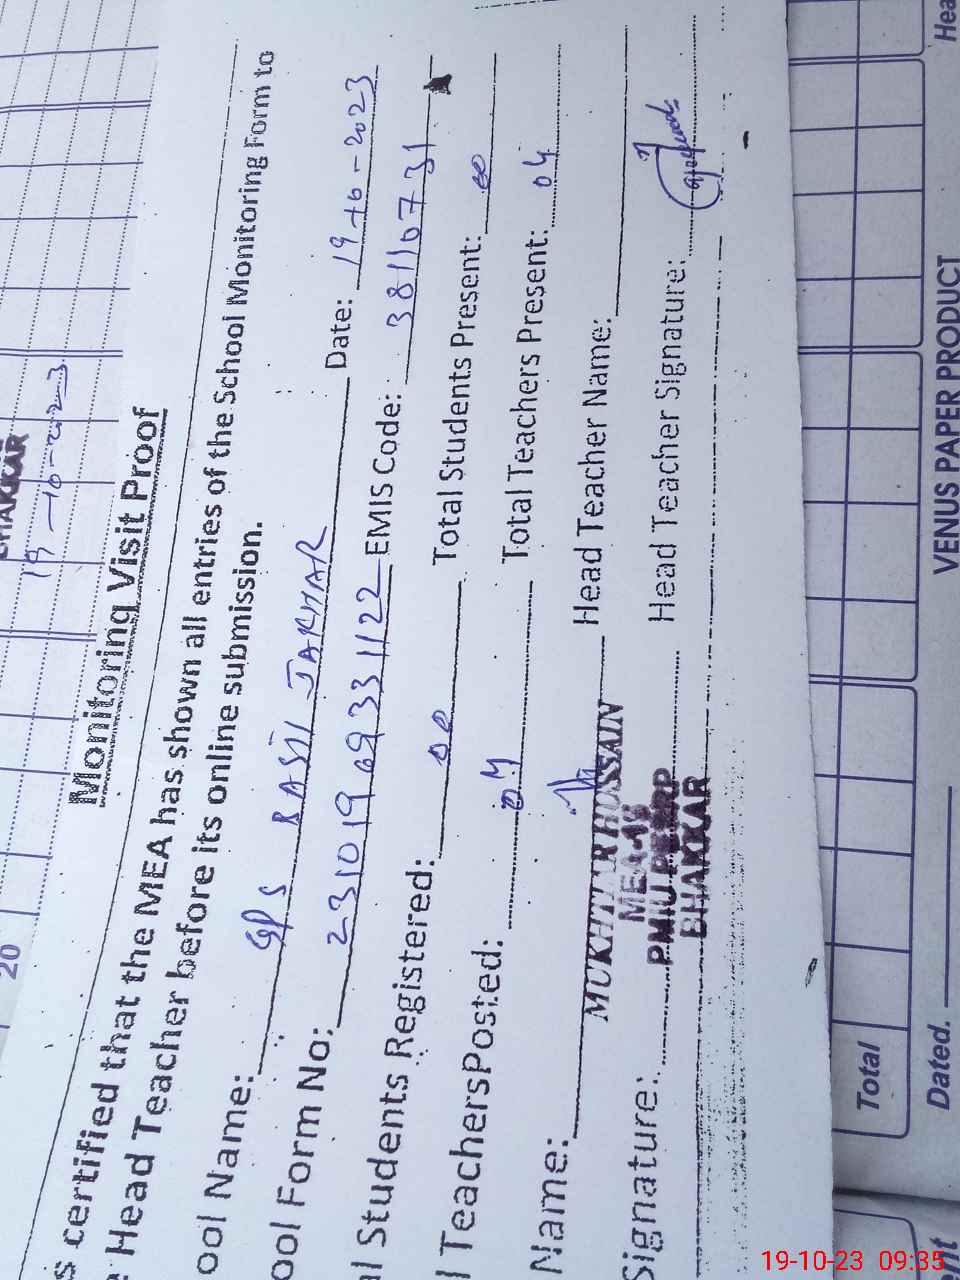 Monitoring Visit Proof
s certified that the MEA has shown all entries of the School Monitoring Form to
Head Teacher before its online submission.
ool Name: GPS BASTI JAKHAR Date: 19-10-2023
ool Form No: 2310196933 1122 EMIS Code: 38110731
l Students Registered: 00 Total Students Present: 00
l TeachersPosted: 04 Total Teachers Present: 04
Name: MUKHTIAR HOSSAIN Head Teacher Name:
Signature: Head Teacher Signature:
PMIU PERP
BHAKKAR
BHAKKAR
19-10-2023
20
Total
Dated.
VENUS PAPER PRODUCT
Hea
ent
19-10-23 09:35